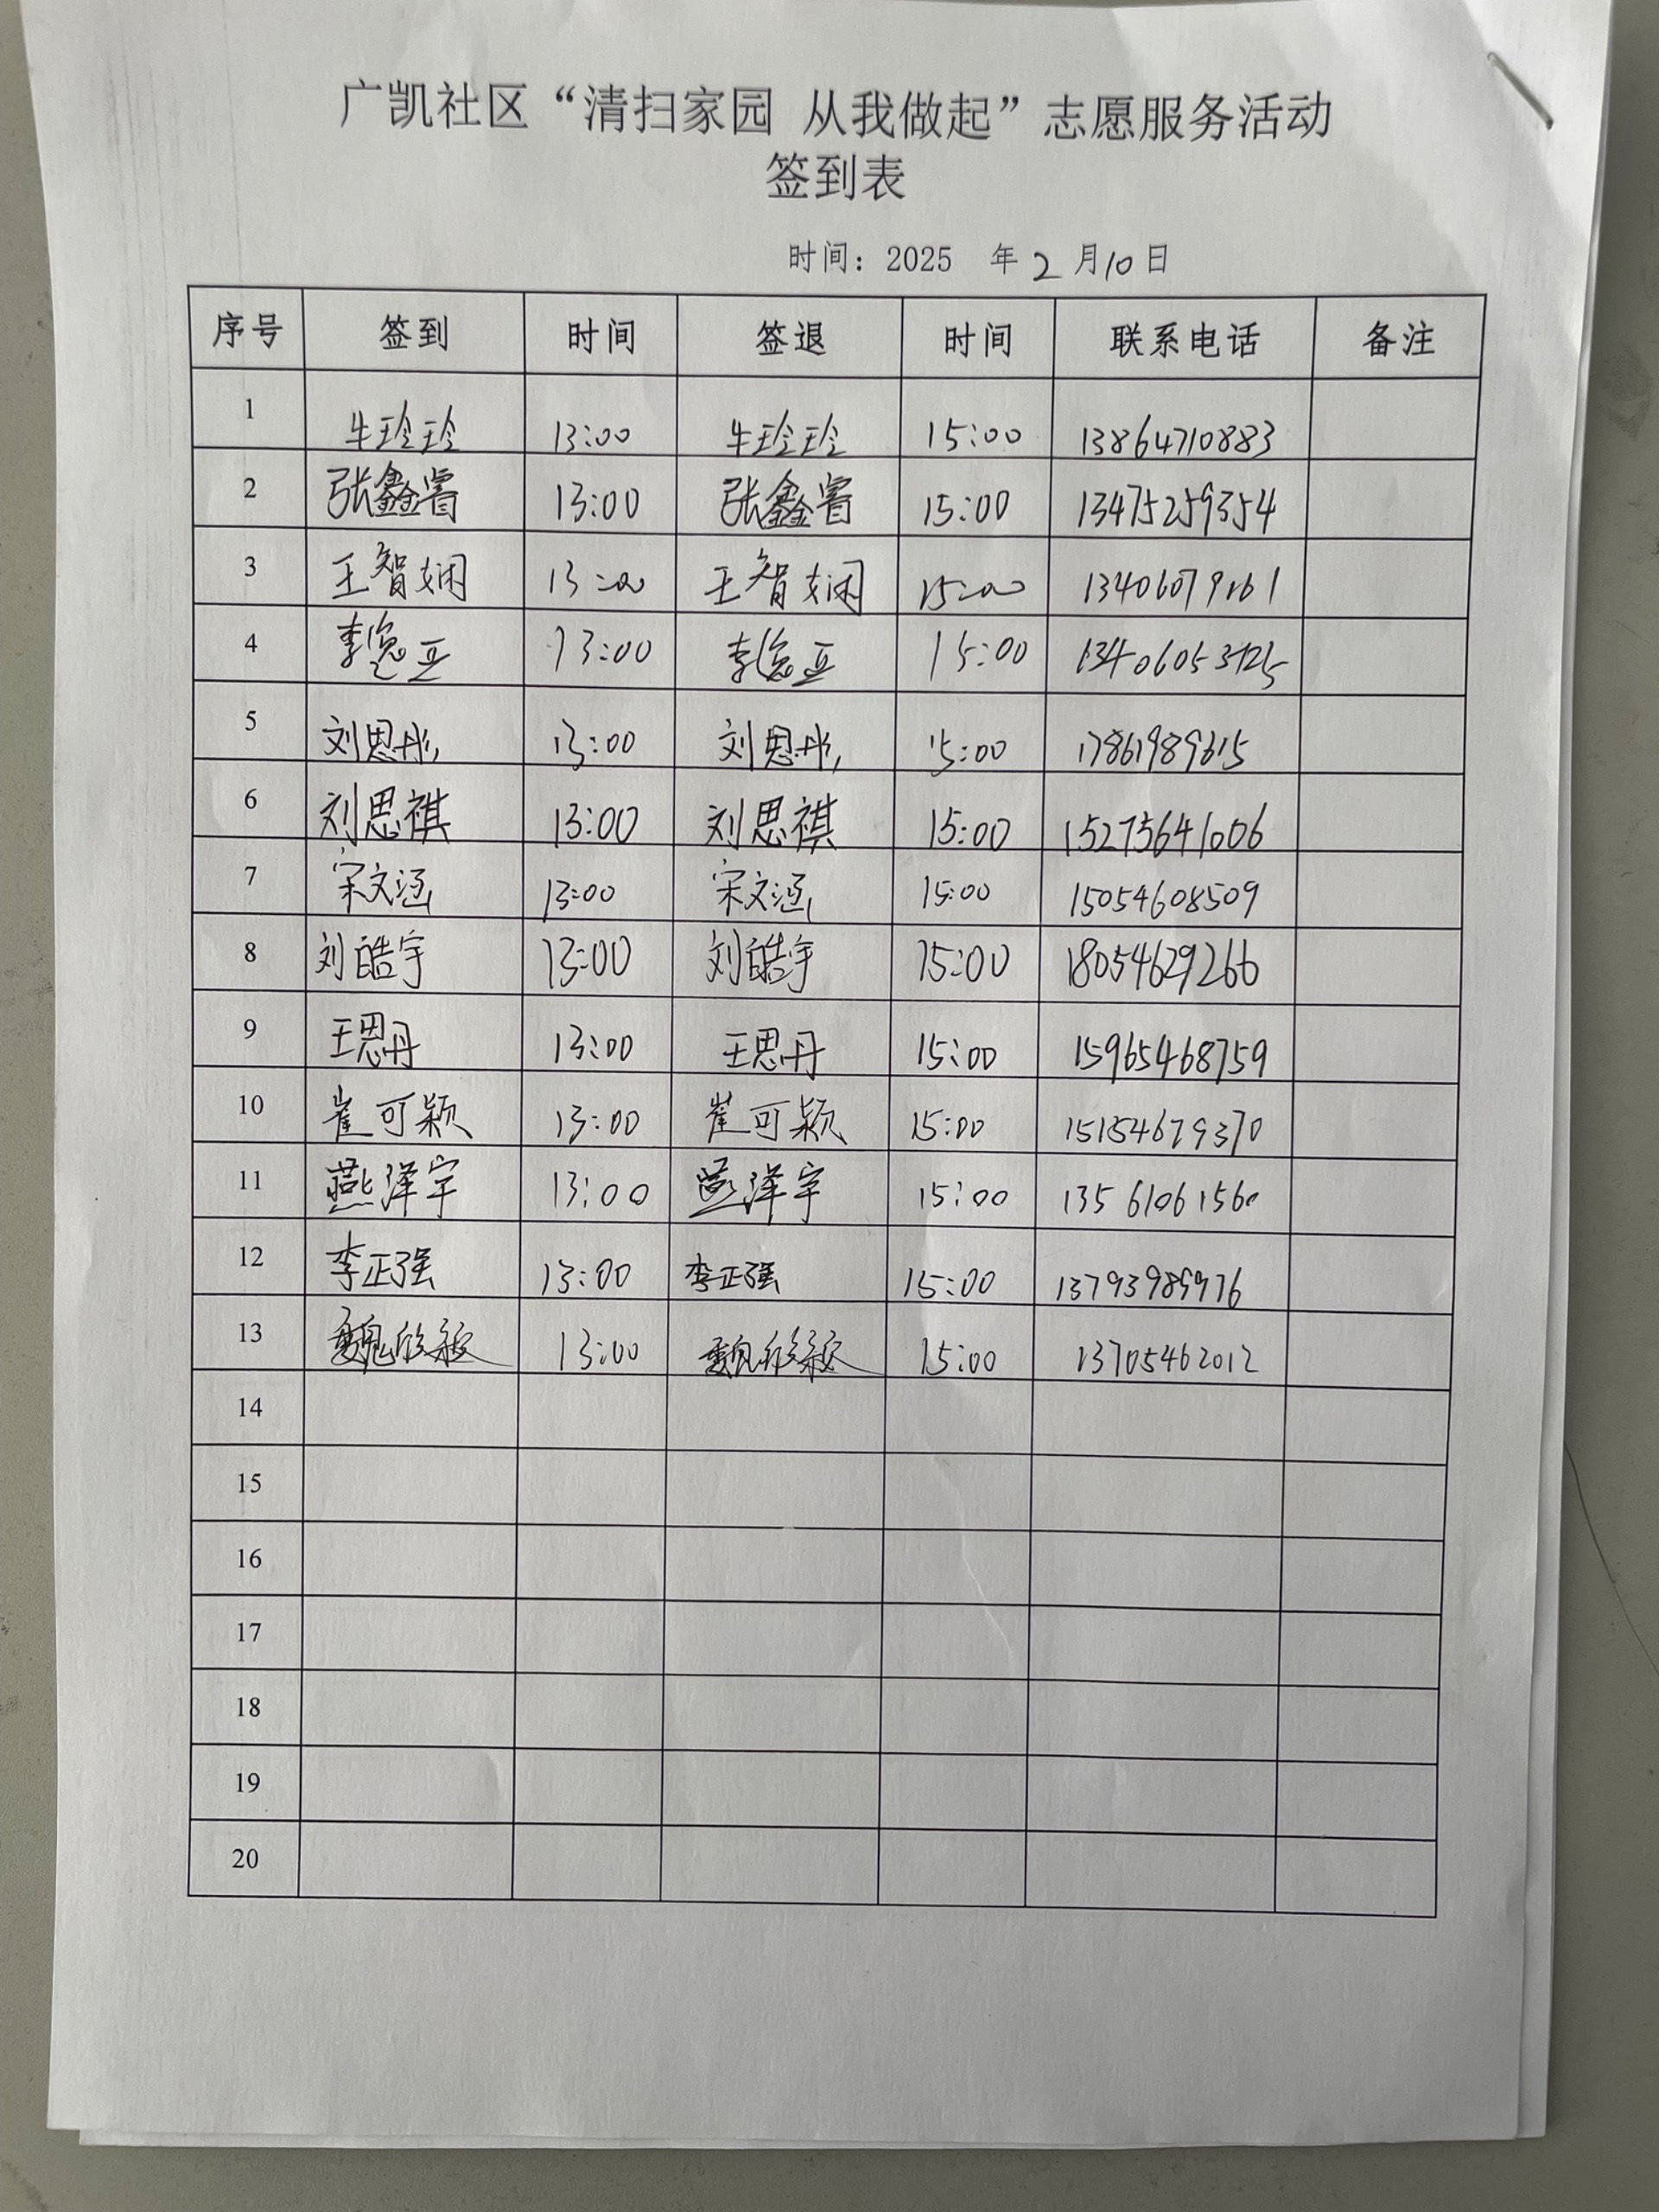 广凯社区“清扫家园 从我做起”志愿服务活动
签到表
时间：2025 年 2 月 10 日
序号 签到 时间 签退 时间 联系电话 备注
1 牛玲玲 13:00 牛玲玲 15:00 13864710883
2 张鑫睿 13:00 张鑫睿 15:00 13475259354
3 王智娴 13:00 王智娴 15:00
4 13:00 15:00
5 刘思彤 13:00 刘思彤 15:00 17861989615
6 刘思祺 13:00 刘思祺 15:00 15275641006
7 宋文涵 13:00 宋文涵 15:00 15054608509
8 刘皓宇 13:00 刘皓宇 15:00 18054629266
9 王思丹 13:00 王思丹 15:00 15965468759
10 崔可颖 13:00 崔可颖 15:00 15154679370
11 燕泽宇 13:00 燕泽宇 15:00 13561061560
12 李正强 13:00 李正强 15:00 13793989976
13 13:00 15:00 13705462012
14
15
16
17
18
19
20